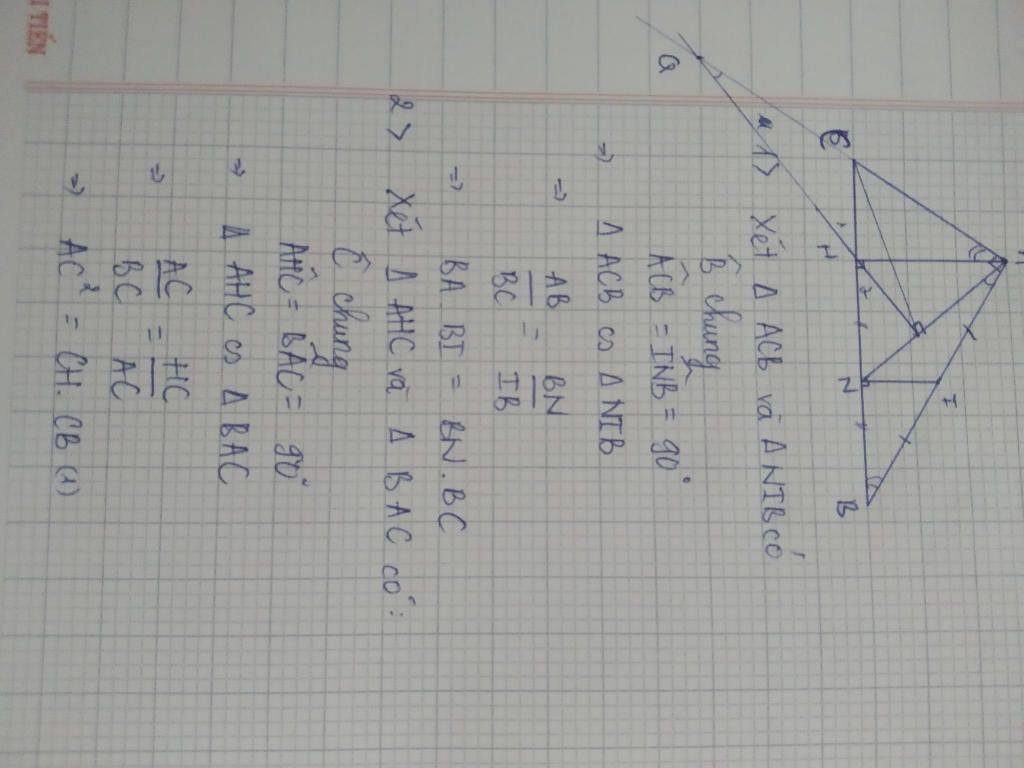 I TIẾN
A
I
B
N
H
C
Q
1> Xét Δ ACB và Δ NIB có
B̂ chung
AĈB = IN̂B = 90°
=> Δ ACB ∽ Δ NIB
=> AB/BC = BN/IB
=> BA. BI = BN. BC
2> Xét Δ AHC và Δ BAC có:
Ĉ chung
AĤC = BÂC = 90°
=> Δ AHC ∽ Δ BAC
=> AC/BC = HC/AC
=> AC² = CH. CB (1)